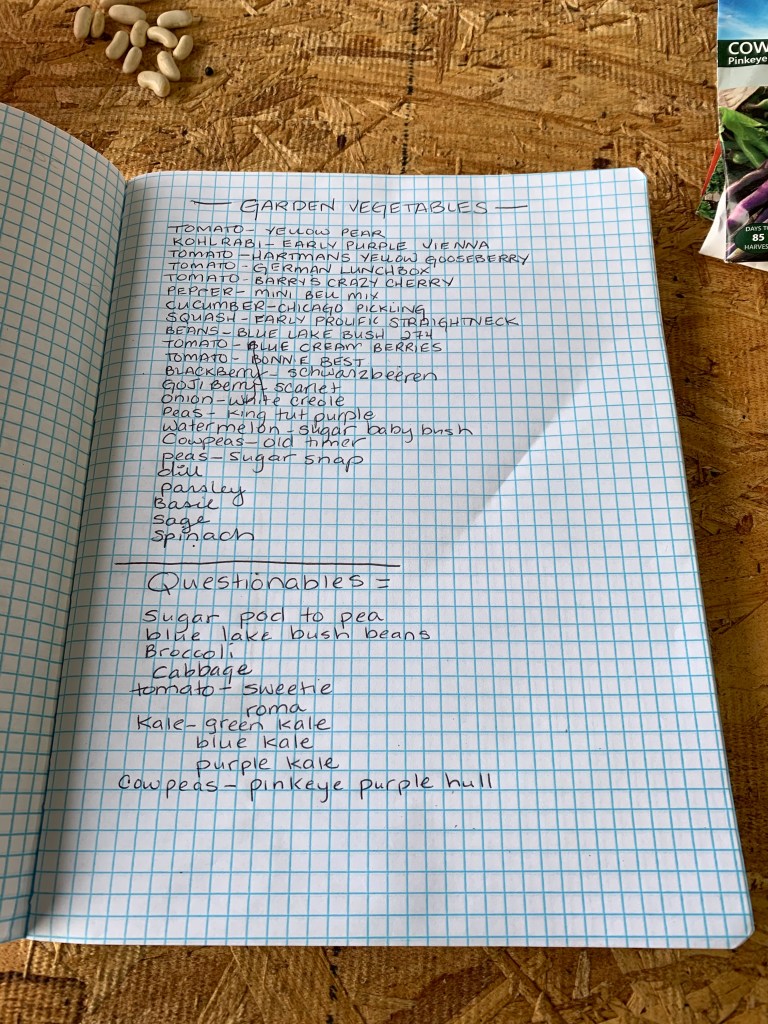 COW
Pinkeye
DAYS T
85
HARVES
— GARDEN VEGETABLES —
TOMATO - YELLOW PEAR
KOHLRABI - EARLY PURPLE VIENNA
TOMATO - HARTMANS YELLOW GOOSEBERRY
TOMATO - GERMAN LUNCHBOX
TOMATO - BARRYS CRAZY CHERRY
PEPPER - MINI BELL MIX
CUCUMBER - CHICAGO PICKLING
SQUASH - EARLY PROLIFIC STRAIGHTNECK
BEANS - BLUE LAKE BUSH 274
TOMATO - BLUE CREAM BERRIES
TOMATO - BONNIE BEST
BLACKBerry - schwarzbeeren
GOJI Berry - scarlet
Onion - white creole
Peas - King tut purple
Watermelon - sugar baby bush
Cowpeas - old timer
peas - sugar snap
dill
parsley
Basil
sage
spinach
Questionables =
Sugar pod to pea
blue lake bush beans
Broccoli
Cabbage
tomato - sweetie
roma
Kale - green kale
blue kale
purple kale
Cowpeas - pinkeye purple hull